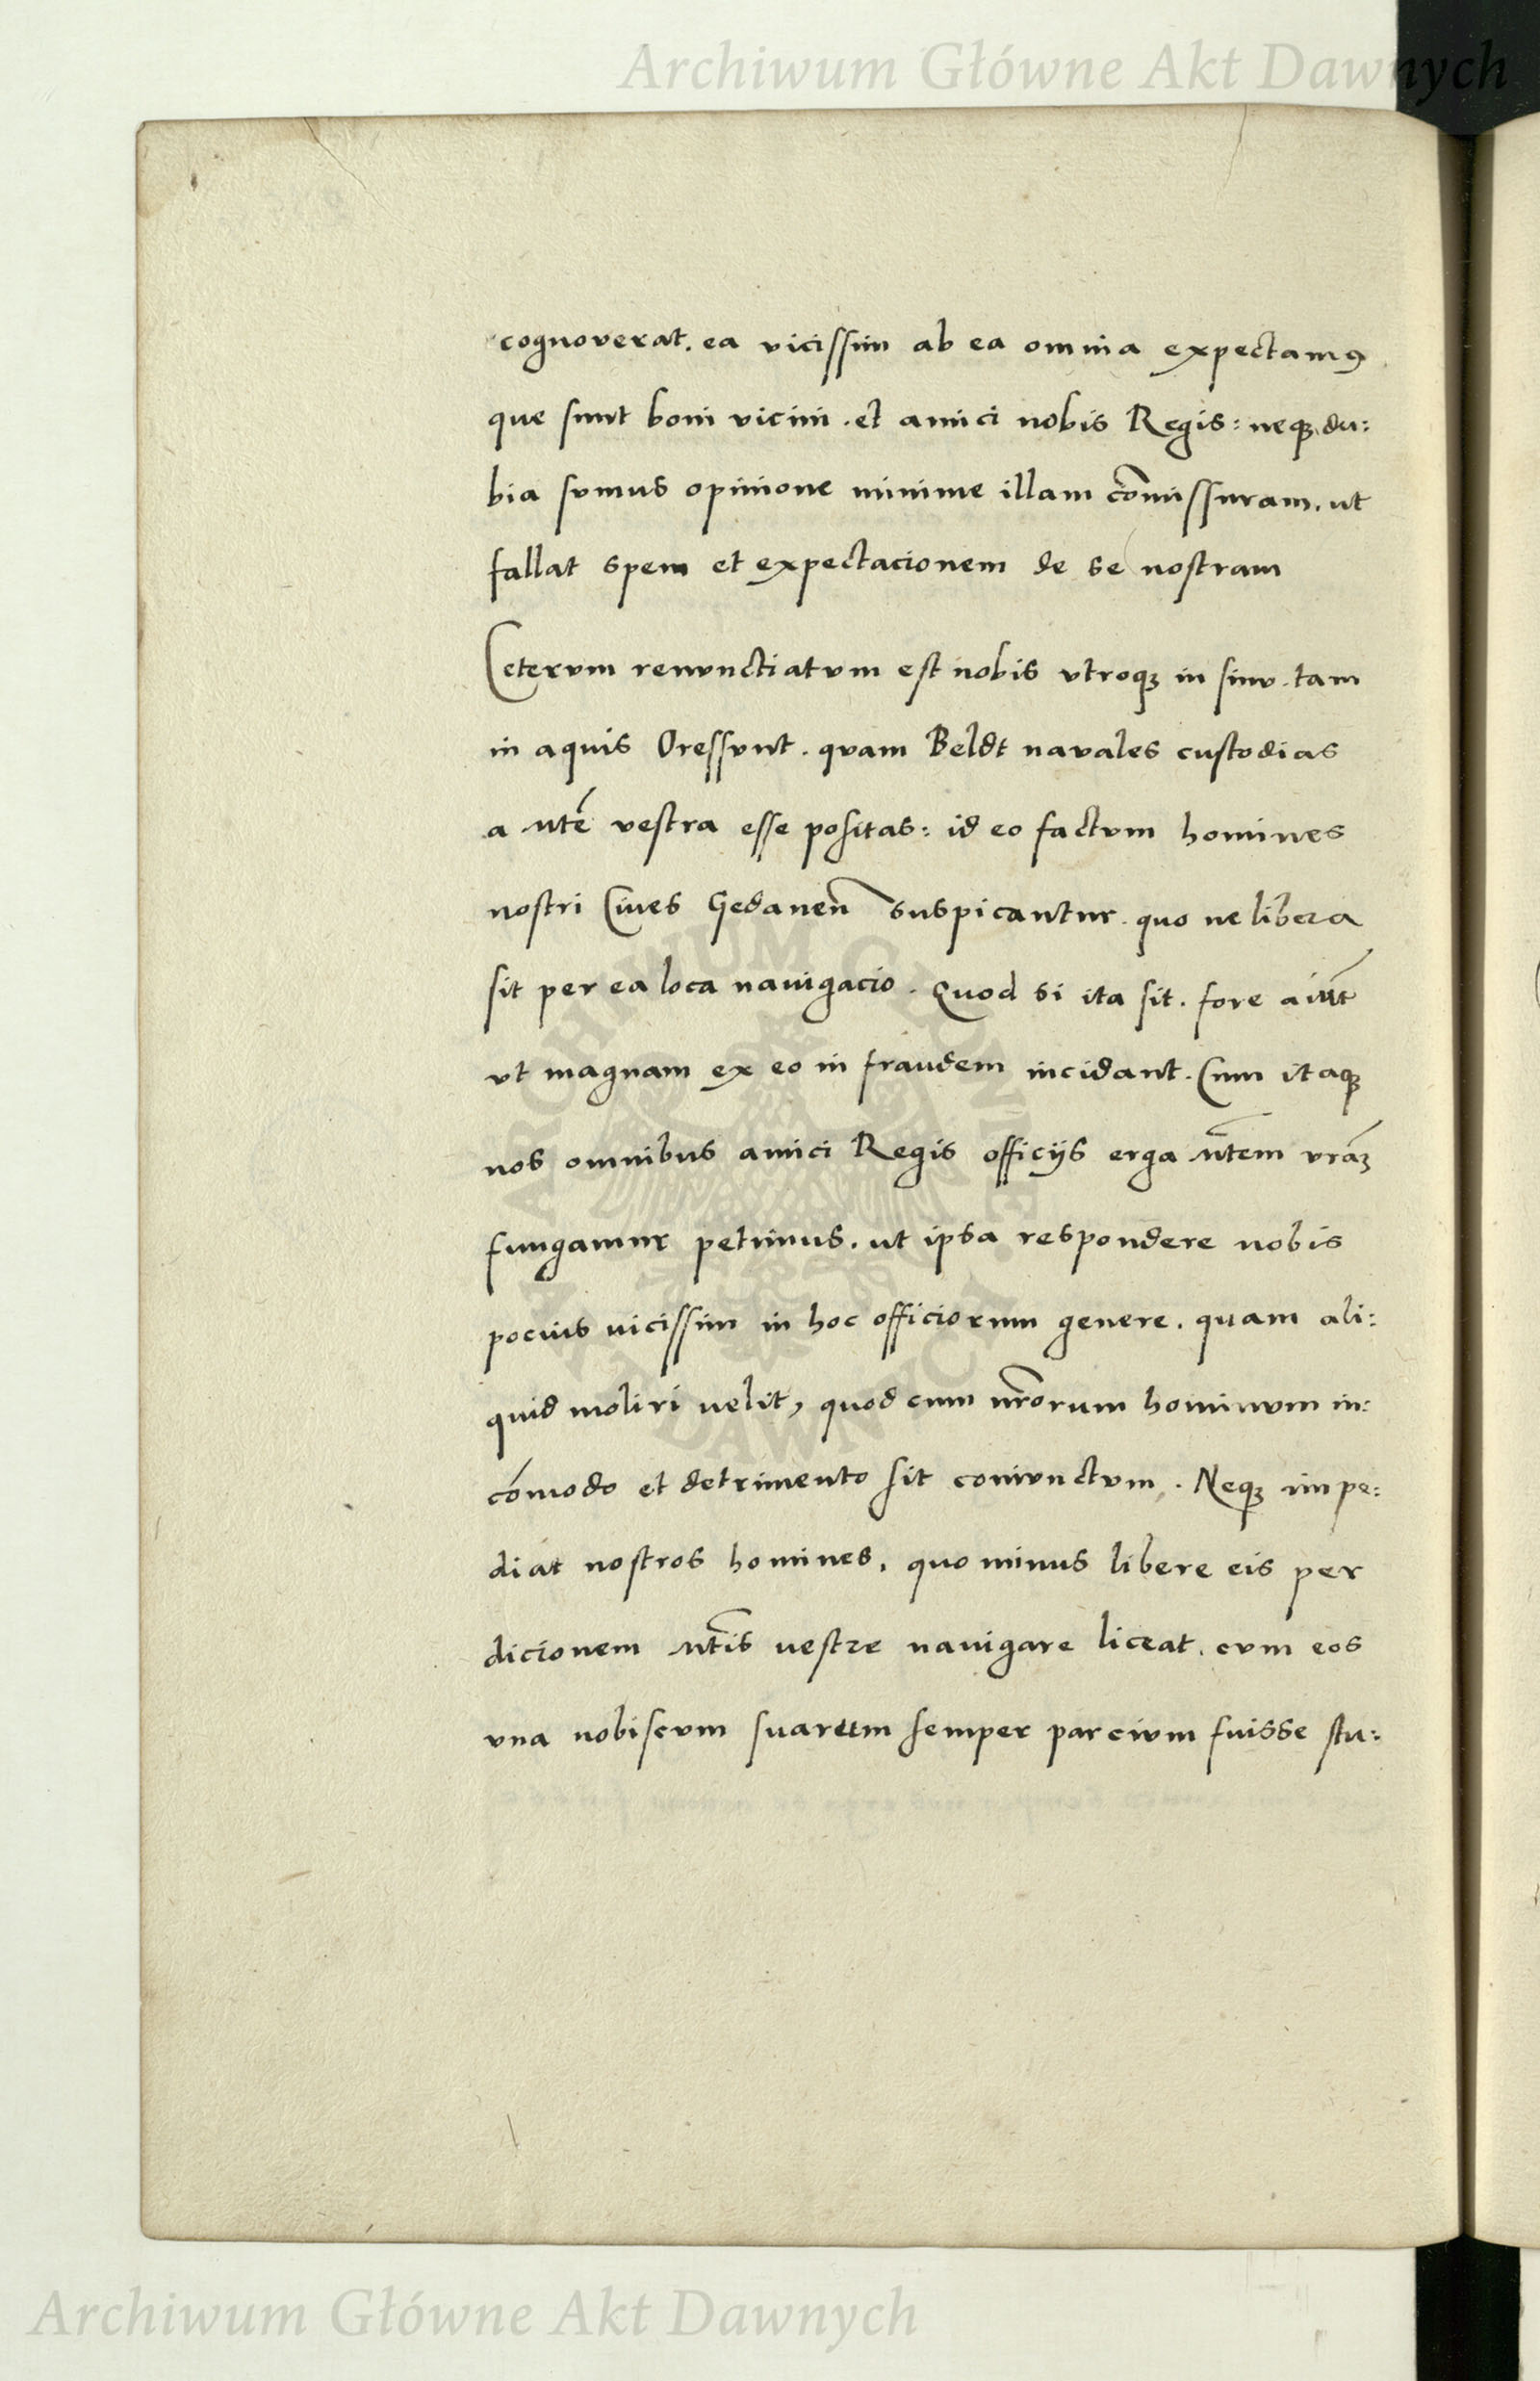 Archiwum Główne Akt Dawnych
cognoverat. ea vicissim ab ea omnia expectamꝰ
que sunt boni vicini. et amici nobis Regis: neqꝫ du:
bia sumus opinione minime illam co͞missuram. ut
fallat spem et expectacionem de se nostram
Ceterum renunctiatum est nobis utroqꝫ in sinu. tam
in aquis Oressunt. quam Beldt navales custodias
a Mte͂ vestra esse positas: id eo factum homines
nostri Cives Gedanen͂ suspicantur. quo ne libera
sit per ea loca navigacio. Quod si ita sit. fore aiu͂t
ut magnam ex eo in fraudem incidant. Cum itaqꝫ
nos omnibus amici Regis officijs erga M͂tem vra͂ꝫ
fungamur petimus. ut ipsa respondere nobis
pocius vicissim in hoc officiorum genere. quam ali:
quid moliri velit, quod cum nr͂orum hominum in:
co͂modo et detrimento sit coniunctum. Neqꝫ impe:
diat nostros homines, quo minus libere eis per
dicionem M͂tis vestre navigare liceat. cum eos
una nobiscum suarum semper parcium fuisse stu:
ARCHIWUM GŁÓWNE AKT DAWNYCH
Archiwum Główne Akt Dawnych